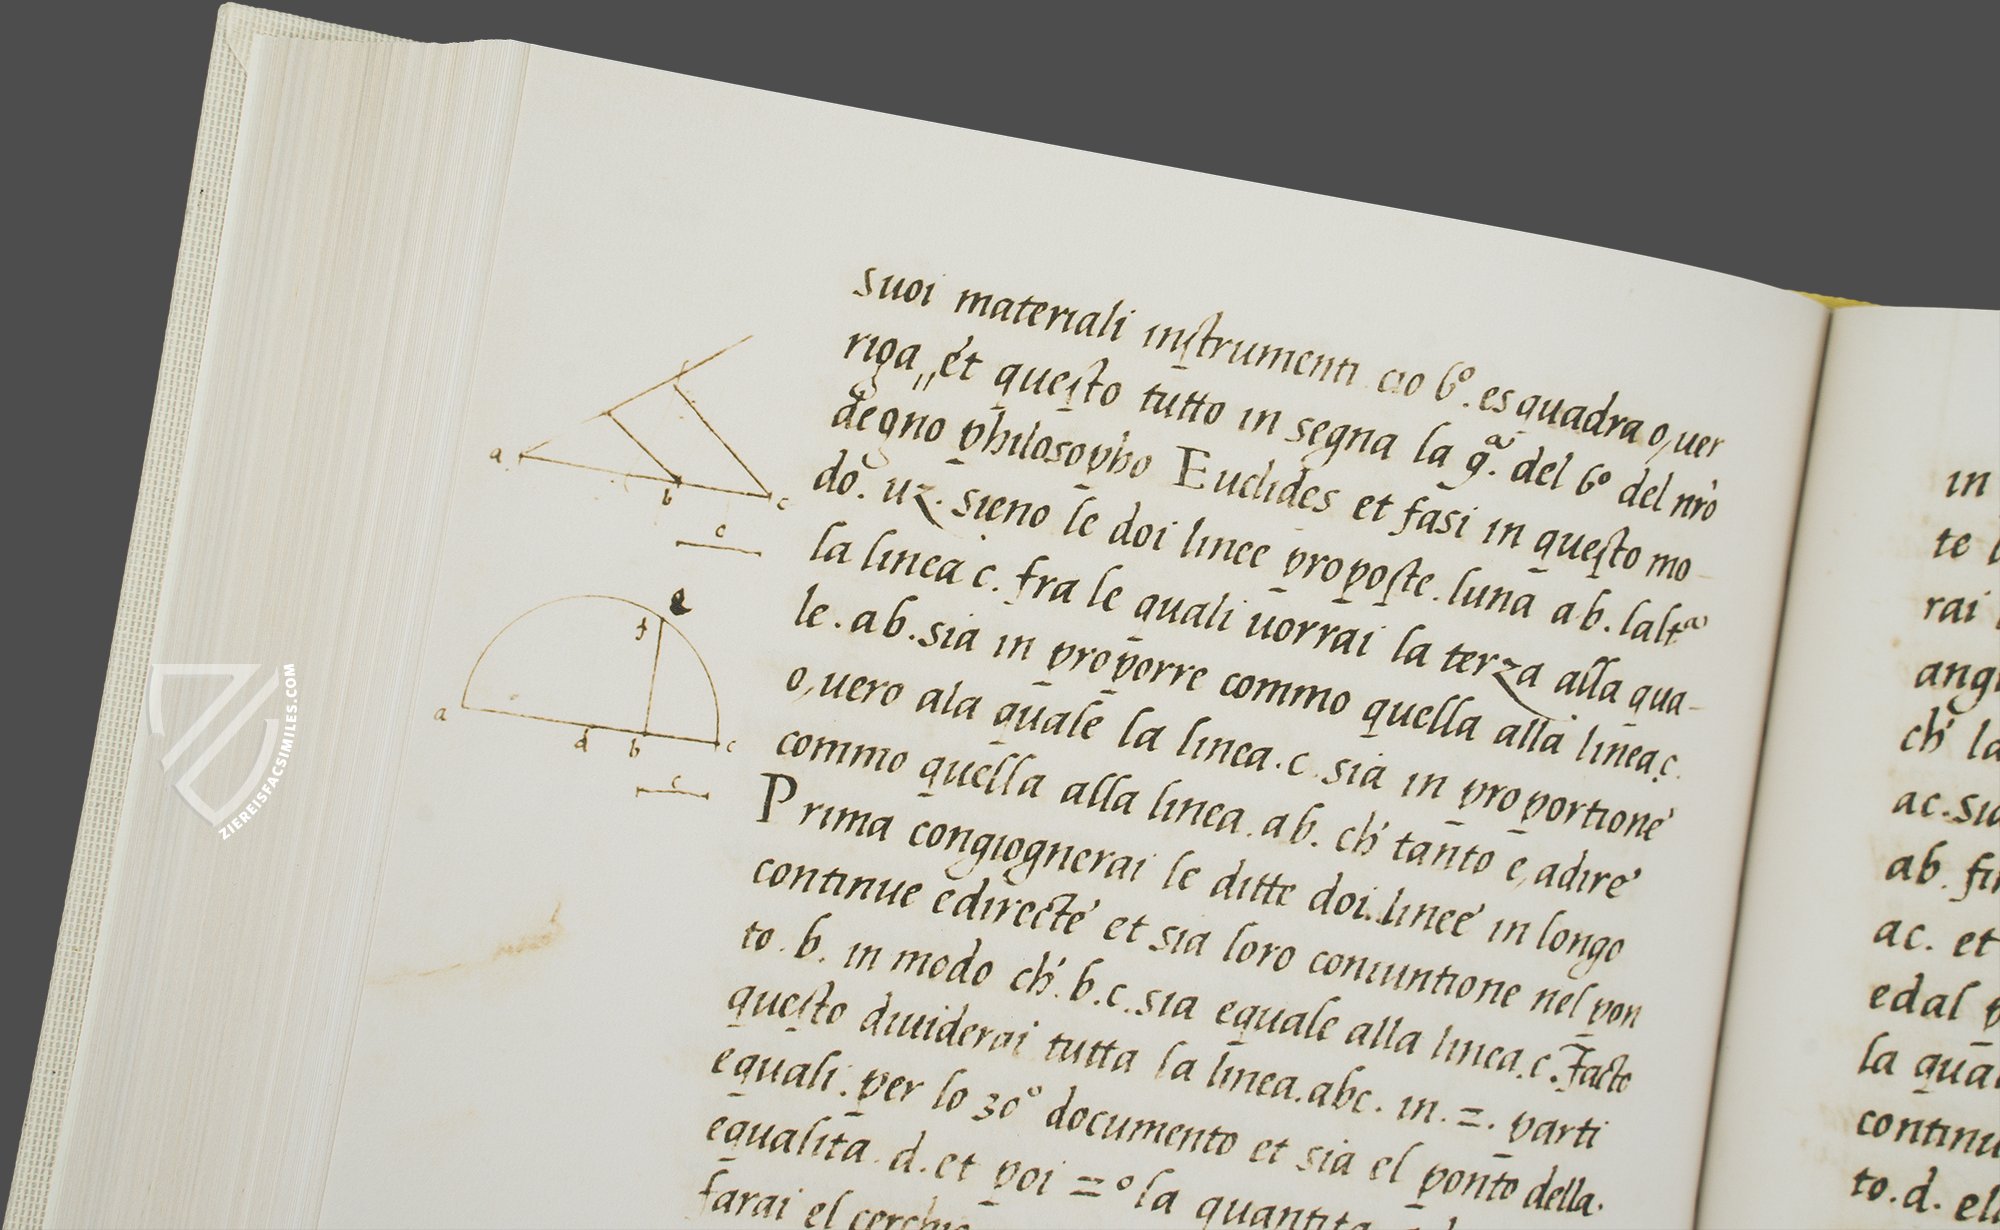 suoi materiali instrumenti cio 6º. esquadra o, uer
riga,, et questo tutto in segna la 9ª. del 6º del nrõ
degno philosopho Euclides et fasi in questo mo-
do. uz. sieno le doi linee proposte. luna ab. laltª
la linea c. fra le quali uorrai la terza alla qua-
le. ab. sia in proporre commo quella alla linea. c.
o, uero ala quale la linea. c. sia in proportione
commo quella alla linea. ab. ch' tanto e, adire'
Prima congiognerai le ditte doi. linee in longo
continue edirecte et sia loro coniuntione nel pon
to. b. in modo ch'. b. c. sia equale alla linea. c. Facto
questo diuiderai tutta la linea. abc. in. =. parti
equali. per lo 30º documento et sia el ponto della.
equalita. d. et poi =º la quantita
farai el cerchio
a
b
c
c
f
a
d
b
c
c
in
te
rai
ang
ch' la
ac. sia
ab. fi
ac. et
edal p
la qua
continu
to. d. el
ZIEREISFACSIMILES.COM